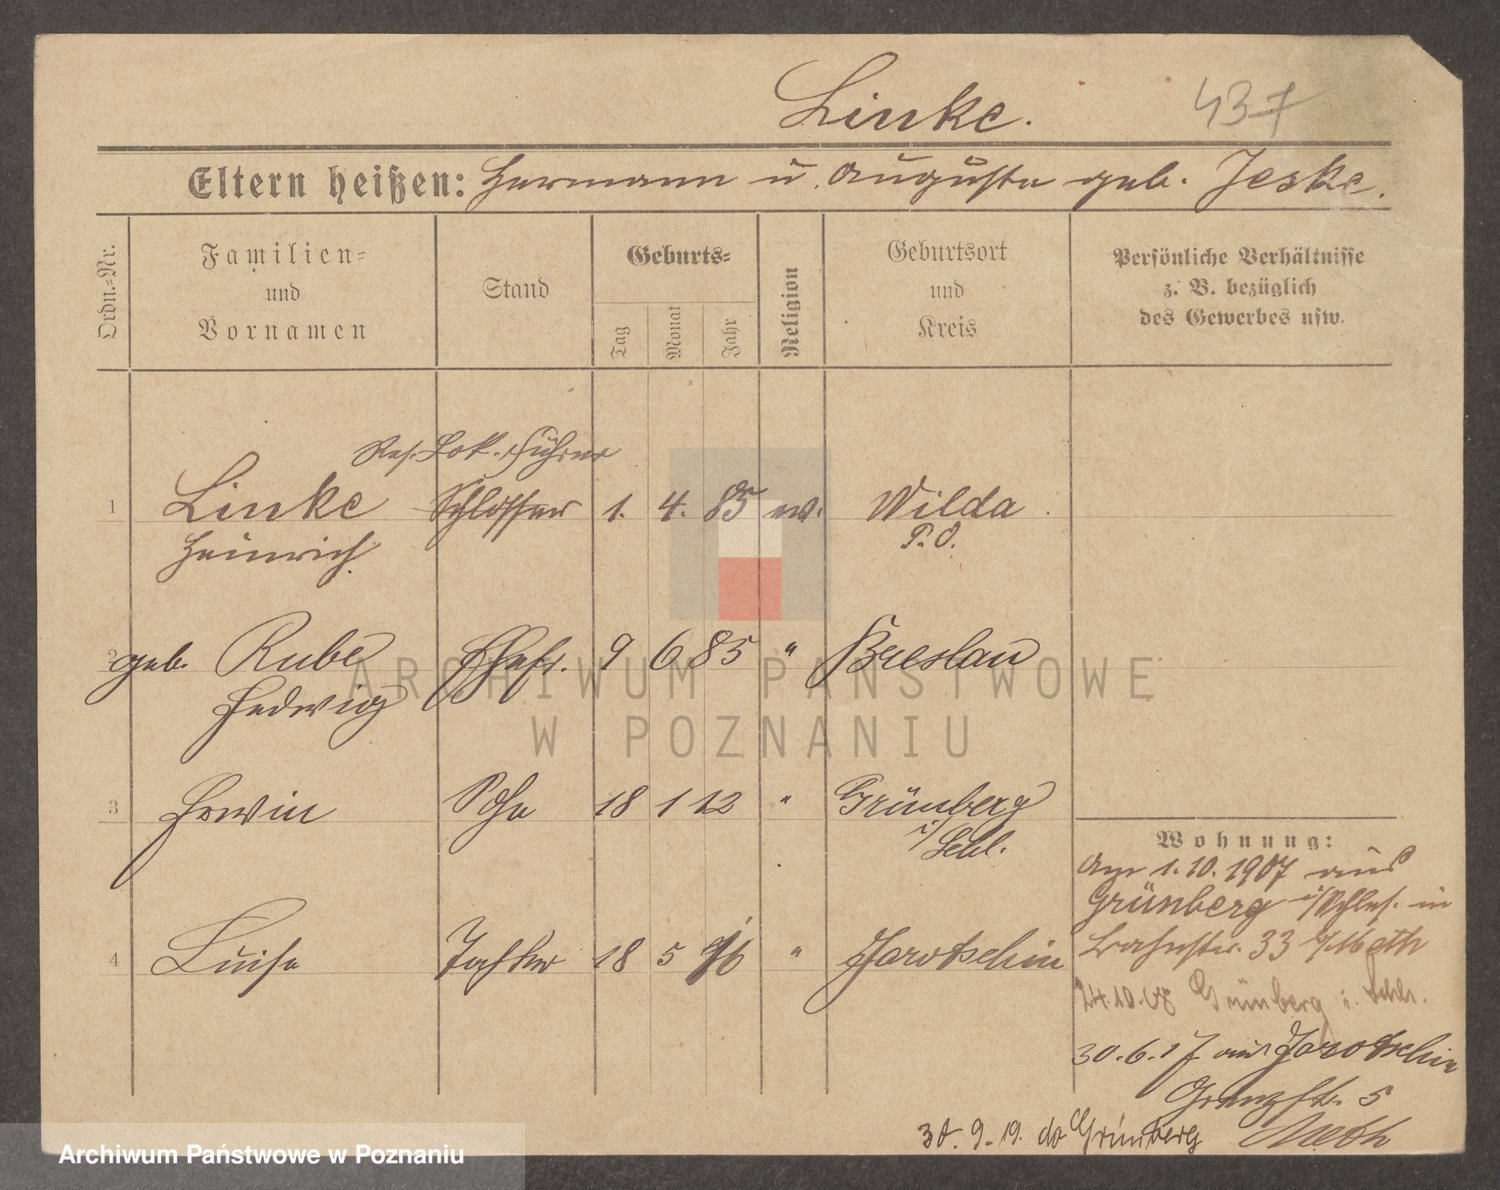 Linke.
437
Eltern heißen: Hermann u. Auguste geb. Jeske.
Ordn.-Nr.
Familien-
und
Vornamen
Stand
Geburts-
Tag
Monat
Jahr
Religion
Geburtsort
und
Kreis
Persönliche Verhältnisse
z. B. bezüglich
des Gewerbes usw.
Res. Lok. Führer
1 Linke Schlosser 1. 4. 85 ev. Wilda
Heinrich P. O.
2 geb. Rube Ehefr. 9 6 85 " Breslau
Hedwig
3 Erwin Sohn 18 1 12 " Grünberg
i/Schl.
4 Luise Tochter 18 5 16 " Jarotschin
Wohnung:
Am 1.10.1907 aus
Grünberg i/Schles. in
Bahnstr. 33 b/Meth
24.10.08 Grünberg i. Schles.
30.6.17 aus Jarotschin
Grenzstr. 5
30.9.19. do Grünberg
ARCHIWUM PAŃSTWOWE
W POZNANIU
Archiwum Państwowe w Poznaniu